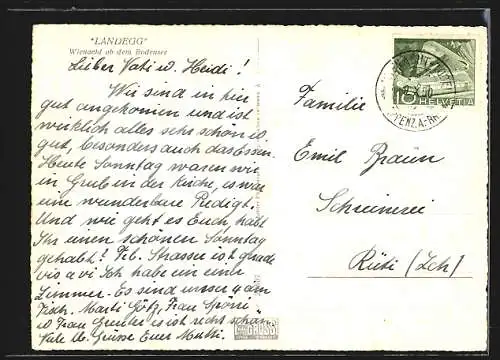 "LANDEGG"
Wienacht ob dem Bodensee
Lieber Vati u. Heidi!
Wir sind in hier
gut angekomen und ist
wirklich alles sehr schön u.
gut, besonders auch das Essen.
Heute Sonntag waren wir
in Grub in der Kirche, es war
eine wunderbare Predigt.
Und wie geht es Euch, habt
Ihr einen schönen Sonntag
gehabt? Frl. Strasser ist grade
vis a vi Ich habe ein eine
Zimmer. Es sind unser 4 am
Tisch. Marti Götz, Frau Spörri
u Frau es ist recht schön
Viele lb. Grüsse Euer Mutti.
Familie
Emil Braun
Schreinerei
Rüti (Zch)
10 HELVETIA
X.50
PPENZ.A.-RH.